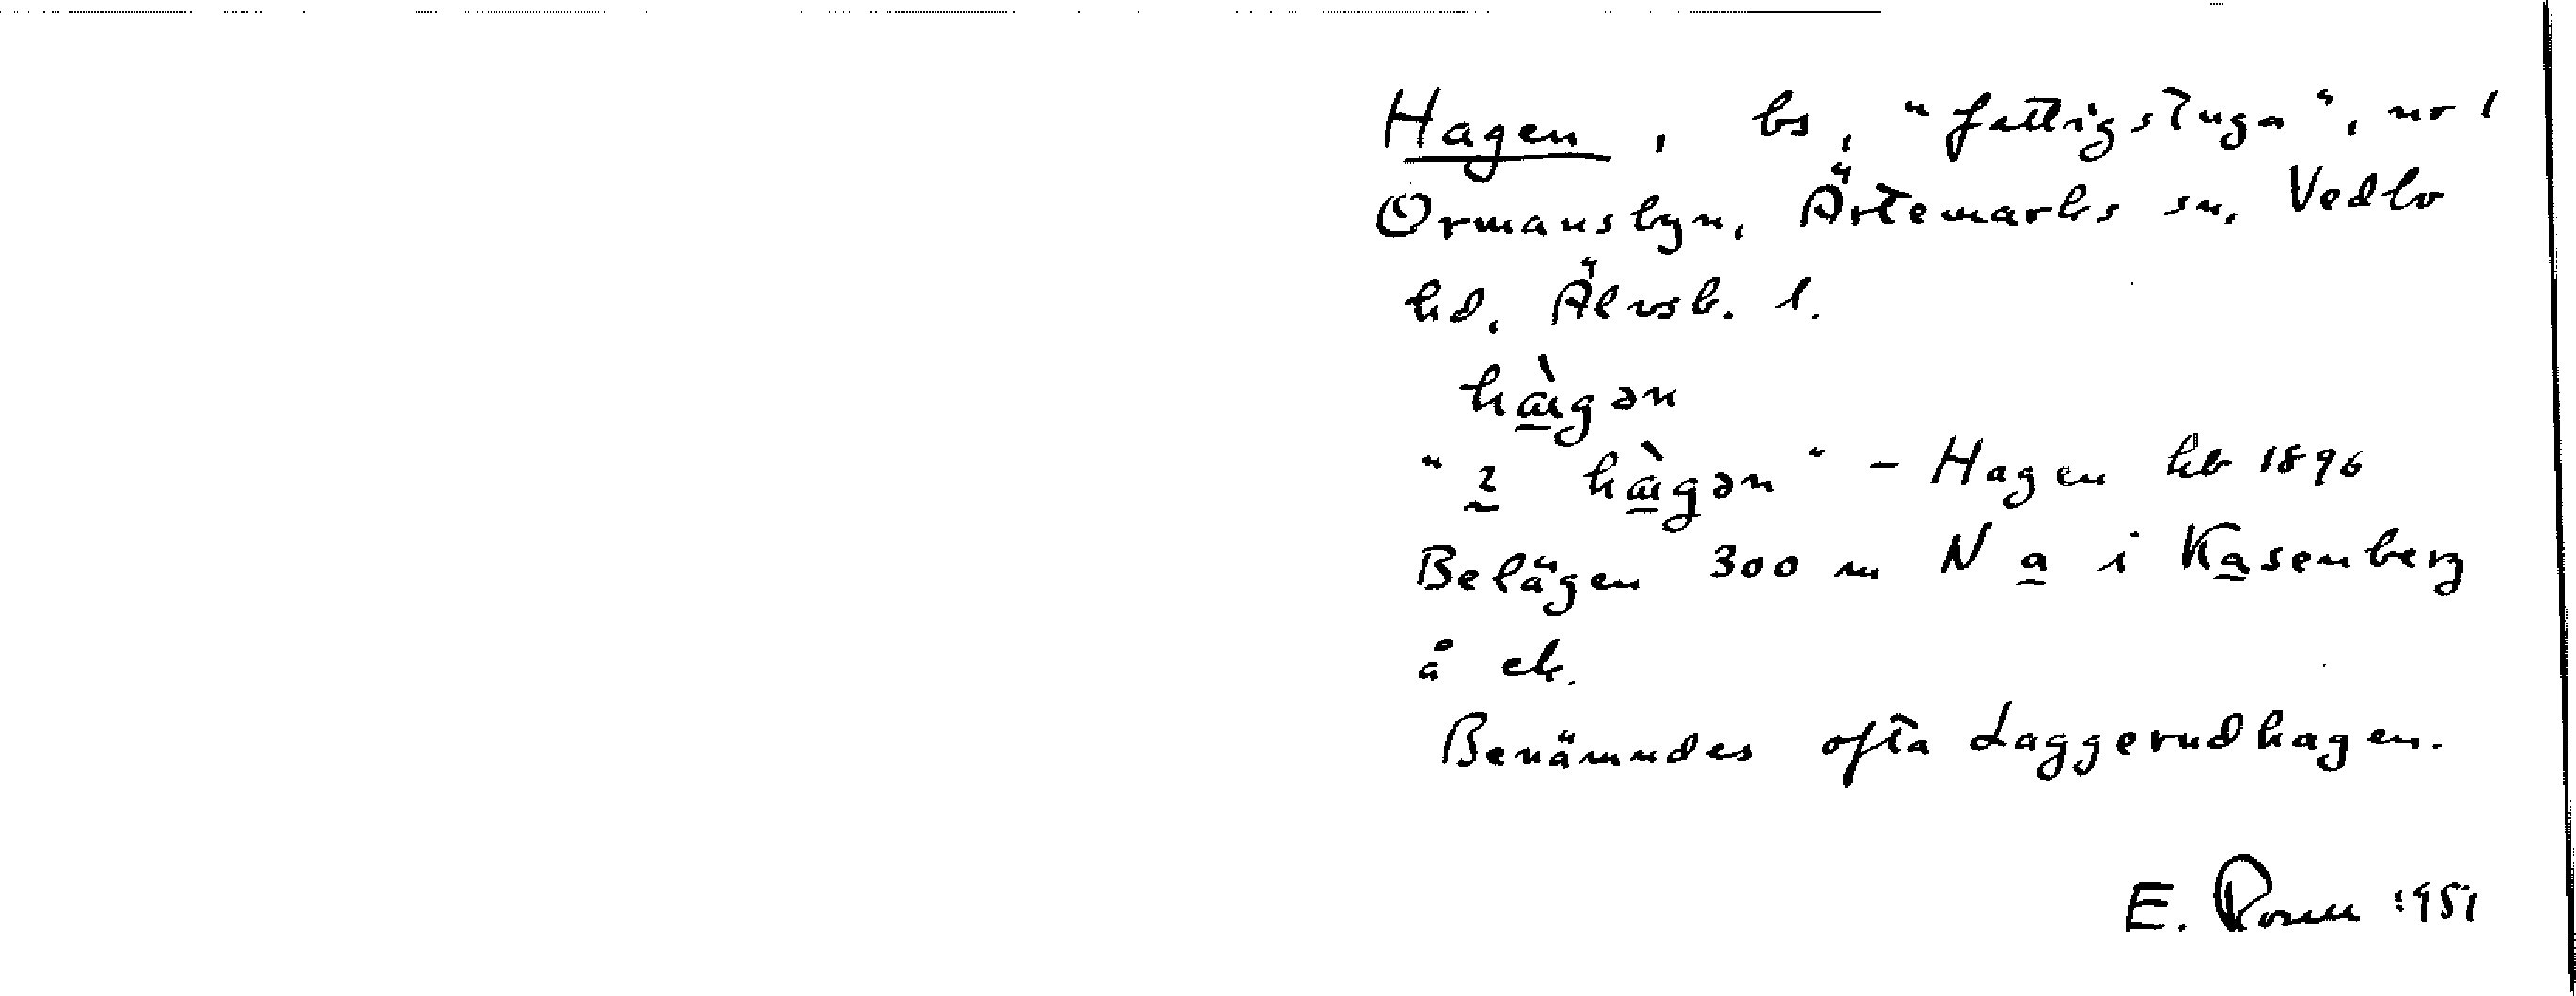 Hagen, bs, "fattigstuga", nr 1
Ormansbyn, Ärtemarks sn, Vedbo
hd, Älvsb. l.
hàgən
"2 hàgən" - Hagen hb 1896
Belägen 300 m N a i Kasenberg
å ek.
Benämndes ofta Laggerudhagen.
E. 1951